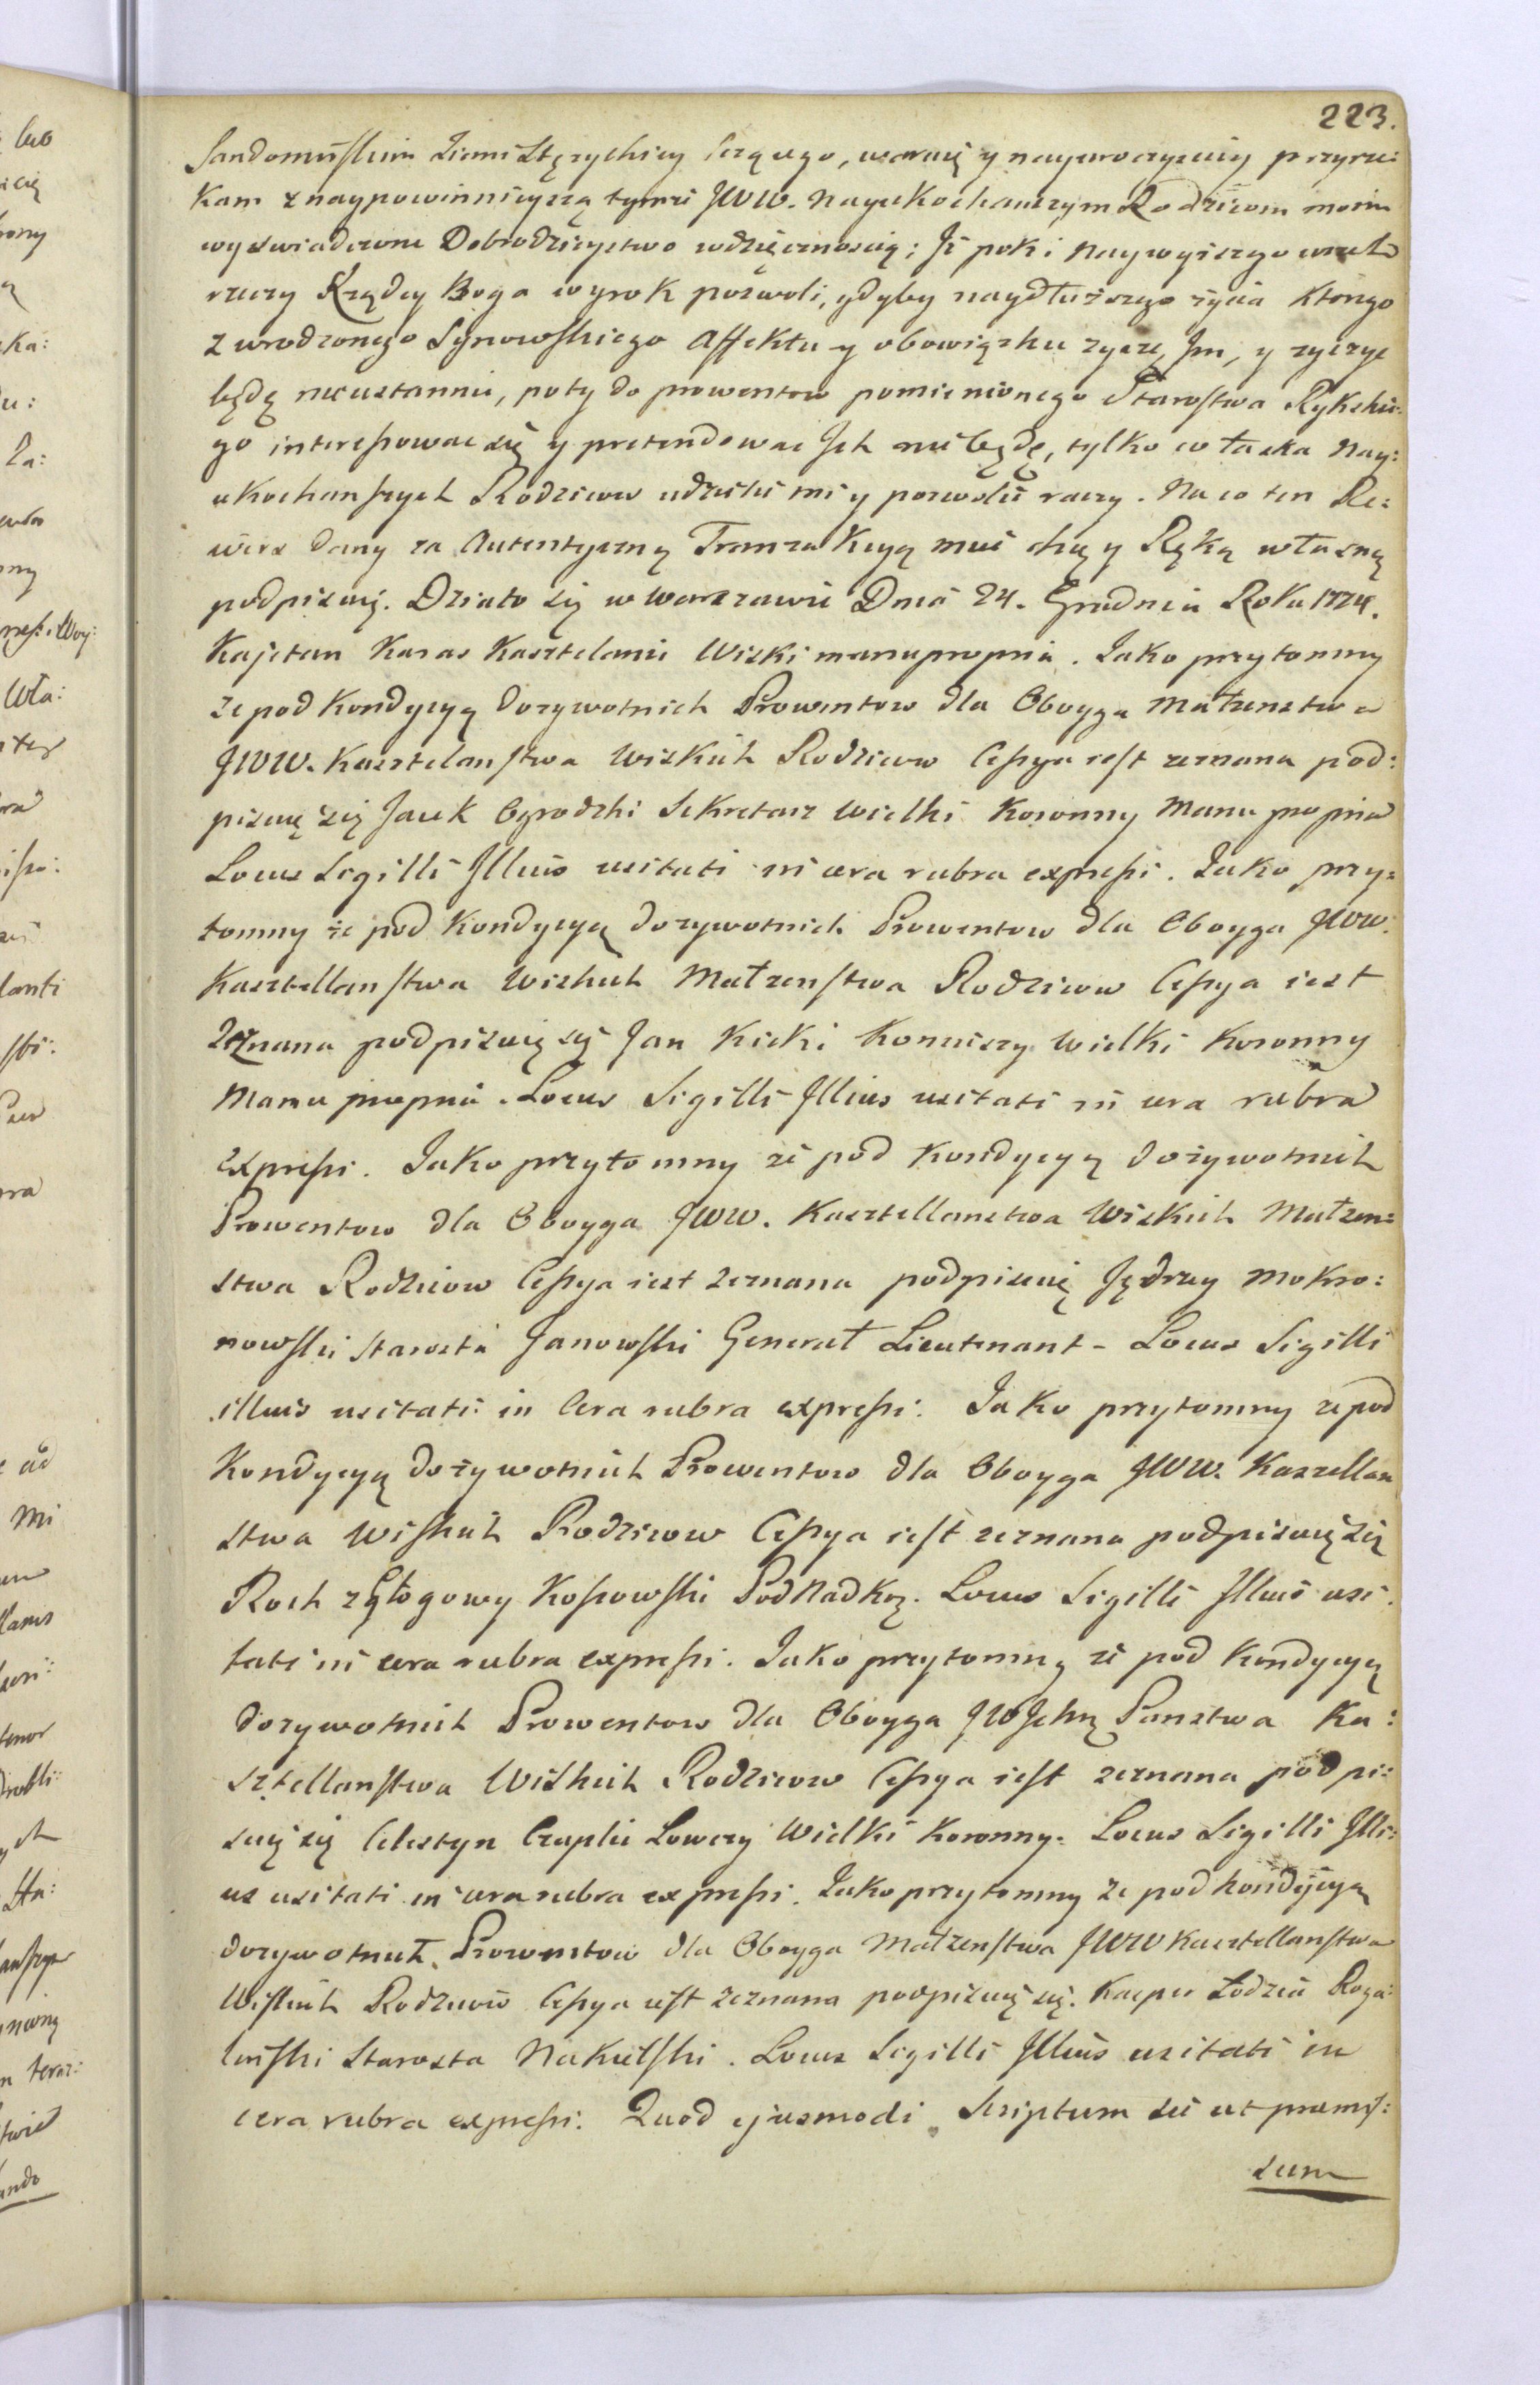 223.
Sandomirskim Ziemi Stężyckiey leżącego, waruię y nayuroczyściey przyrze:
kam z naypowinnieyszą tymże JWW. Nayukochanszym Rodzicom moim
wyswiadczone Dobrodzieystwo wdzięcznoscią; Iż poki Naywyższego wszech
rzeczy Rządcy Boga wyrok pozwoli, gdyby naydłuższego życia Ktorego
z wrodzonego Synowskiego Affektu y obowiązku życzę Im, y życzyc
będę nieustannie, poty do prowentow pomienionego Starostwa Ryckie:
go interessowac się y pretendowac Ich nie będę, tylko co łaska Nay:
ukochanszych Rodzicow udzielić mi y pozwolić raczy. Na co ten Re:
wers dany za Autentyczną Tranzakcyą mieć chcę y Ręką własną
podpisuię. Działo się w Warszawie Dnia 24. Grudnia Roku 1774.
Kajetan Karas Kasztelanic Wizki manu propria. Jako przytomny
ze pod Kondycyą dozywotnich Prowentow dla Oboyga Małzenstwa
JWW. Kasztelanstwa Wizkich Rodzicow Cessya iest zeznana pod:
pisuię się Jacek Ogrodzki Sekretarz Wielki Koronny Manu propria
Locus Sigilli Illius usitati in cera rubra expressi. Jako przy:
tomny że pod Kondycyą dozywotnich Prowentow dla Oboyga JWW.
Kasztellanstwa Wizkich Małzenstwa Rodzicow Cessya iest
Zeznana podpisuię się Jan Kicki Koniuszy Wielki Koronny
Manu propria. Locus Sigilli Illius usitati in cera rubra
expressi. Jako przytomny ze pod Kondycyą dożywotnich
Prowentow dla Oboyga JWW. Kasztellanstwa Wizkich Małzen:
stwa Rodzicow Cessya iest zeznana podpisuię Jędrzey Mokro:
nowski Starosta Janowski Generał Lieutenant - Locus Sigilli
illius usitati in Cera rubra expressi. Jako przytomny ze pod
Kondycyą dożywotnich Prowentow dla Oboyga JWW. Kasztellan
stwa Wiskich Rodzicow Cessya iest zeznana podpisuię się
Roch z Głogowy Kossowski PodNadKo. Locus Sigilli Illius usi:
tati in cera rubra expressi. Jako przytomny ze pod Kondycyą
dozywotnich Prowentow dla Oboyga JWIchm Panstwa Ka:
sztellanstwa Wizkich Rodzicow Cessya iest zeznana podpi:
suię się Celestyn Czaplic Łowczy Wielki Koronny. Locus Sigilli Illi:
us usitati in cera rubra expressi. Jako przytomny ze pod kondycyą
dozywotnich Prowentow dla Oboyga Małzenstwa JWW Kasztellanstwa
Wiskich Rodzicow Cessya iest zeznana podpisuię się. Kacper Łodzia Roga:
linski Starosta Nakielski. Locus Sigilli Illius usitati in
cera rubra expressi. Quod ejusmodi Scriptum sic ut præmis:
sum